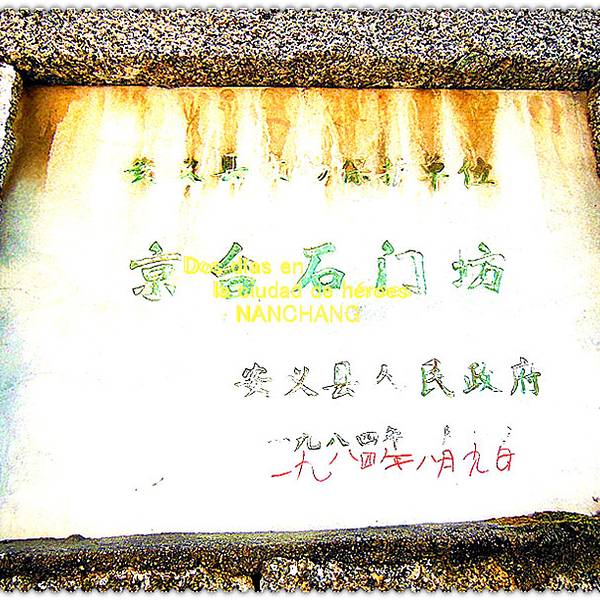 安义县文物保护单位
京台石门坊
Dos días en
la ciudad de héroes
NANCHANG
安义县人民政府
一九八四年八月九日
一九八四年八月九日